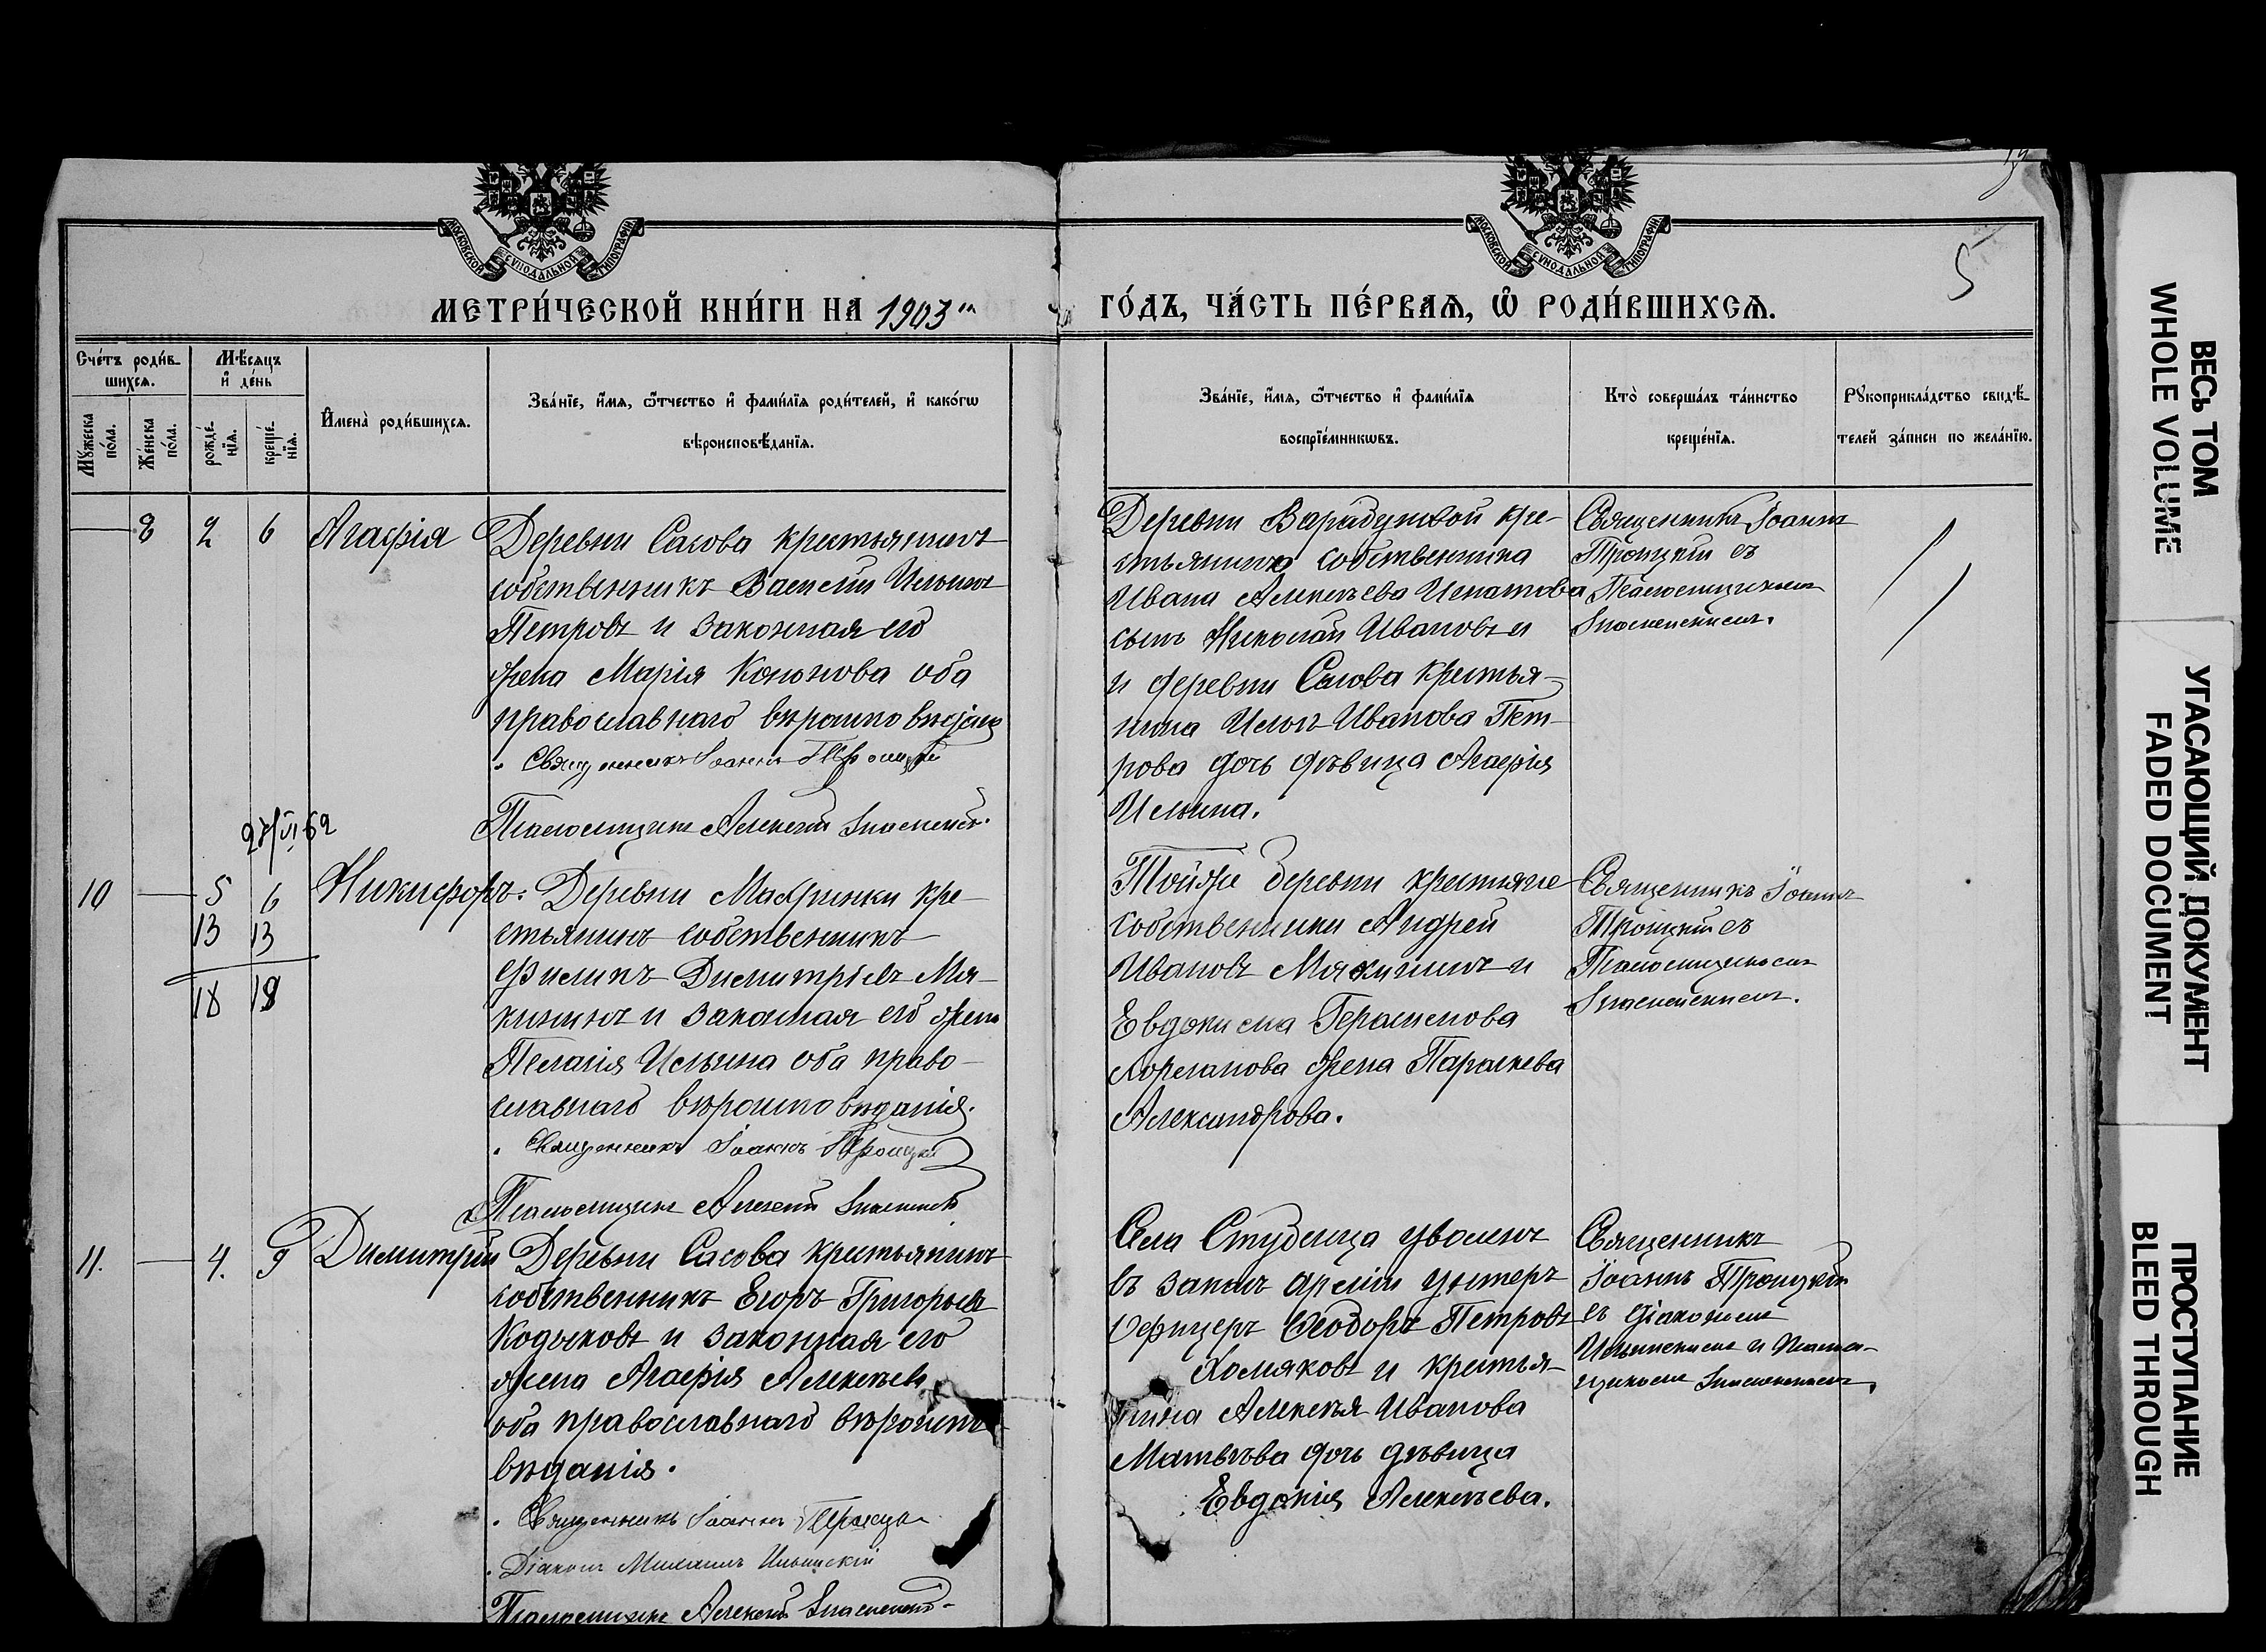 МОСКОВСКОЙ СѴНОДАЛЬНОЙ ТИПОГРАФІИ
МОСКОВСКОЙ СѴНОДАЛЬНОЙ ТИПОГРАФІИ
5
МЕТРИ́ЧЕСКОЙ КНИ́ГИ НА 1903 ГО́ДЪ, ЧА́СТЬ ПЕ́РВАѦ, Ѡ҆ РОДИ́ВШИХСѦ.
Сче́тъ роди́в-
шихсѧ.
Мꙋ́жеска
по́ла.
Же́нска
по́ла.
Мѣ́сѧцъ
и҆ де́нь
рожде́-
нїѧ.
креще́-
нїѧ.
И҆мена̀ роди́вшихсѧ.
Зва́нїе, и҆́мѧ, ѻ҆́тчество и҆ фами́лїѧ роди́телей, и҆ како́гѡ
вѣроисповѣ́данїѧ.
Зва́нїе, и҆́мѧ, ѻ҆́тчество и҆ фами́лїѧ
воспрїе́мникѡвъ.
Кто̀ соверша́лъ та́инство
креще́нїѧ.
Рꙋкоприкла́дство свидѣ́-
телей за́писи по жела́нїю.
8 2 6 Агафія
Деревни Сасова крестьянинъ
собственникъ Василій Ильинъ
Петровъ и законная его
жена Марія Кононова оба
православнаго вѣроисповѣданія
Священникъ Іоаннъ Троицкій
Псаломщикъ Алексій
Деревни кре-
стьянина собственника
Ивана Алексѣева Игнатова
сынъ Николай Ивановъ и
и деревни Сасова крестья-
нина Ильи Иванова Пет-
рова дочь дѣвица Агафія
Ильина.
Священникъ Іоаннъ
Троицкій съ
Псаломщикомъ
27/VI 62
10 5 6 Никифоръ.
13 13
18 18
Деревни Макринки кре-
стьянинъ собственникъ
Филипъ Димитріевъ Мя-
кининъ и законная его жена
Пелагія Ильина оба право-
славнаго вѣроисповѣданія.
Священникъ Іоаннъ Троицкій
Псаломщикъ Алексій
Той же деревни крестьяне
собственники Андрей
Ивановъ Мякининъ и
Евдокима Герасимова
жена Параскева
Александрова.
Священникъ Іоаннъ
Троицкій съ
Псаломщикомъ
11. 4. 9 Димитрій
Деревни Сасова крестьянинъ
собственникъ Егоръ Григорьевъ
и законная его
жена Агафія Алексѣева
оба православнаго вѣроиспо-
вѣданія.
Священникъ Іоаннъ
Діаконъ Михаилъ Ильинскій
Псаломщикъ Алексій
Села Студенца уволенъ
въ запасъ арміи унтеръ
офицеръ Ѳеодоръ Петровъ
Хомяковъ и крестья-
нина Алексѣя Иванова
Матвѣева дочь дѣвица
Евдокія Алексѣева.
Священникъ
Іоаннъ Троицкій
съ діакономъ
Ильинскимъ и Псалом-
щикомъ
ВЕСЬ ТОМ
WHOLE VOLUME
УГАСАЮЩИЙ ДОКУМЕНТ
FADED DOCUMENT
ПРОСТУПАНИЕ
BLEED THROUGH